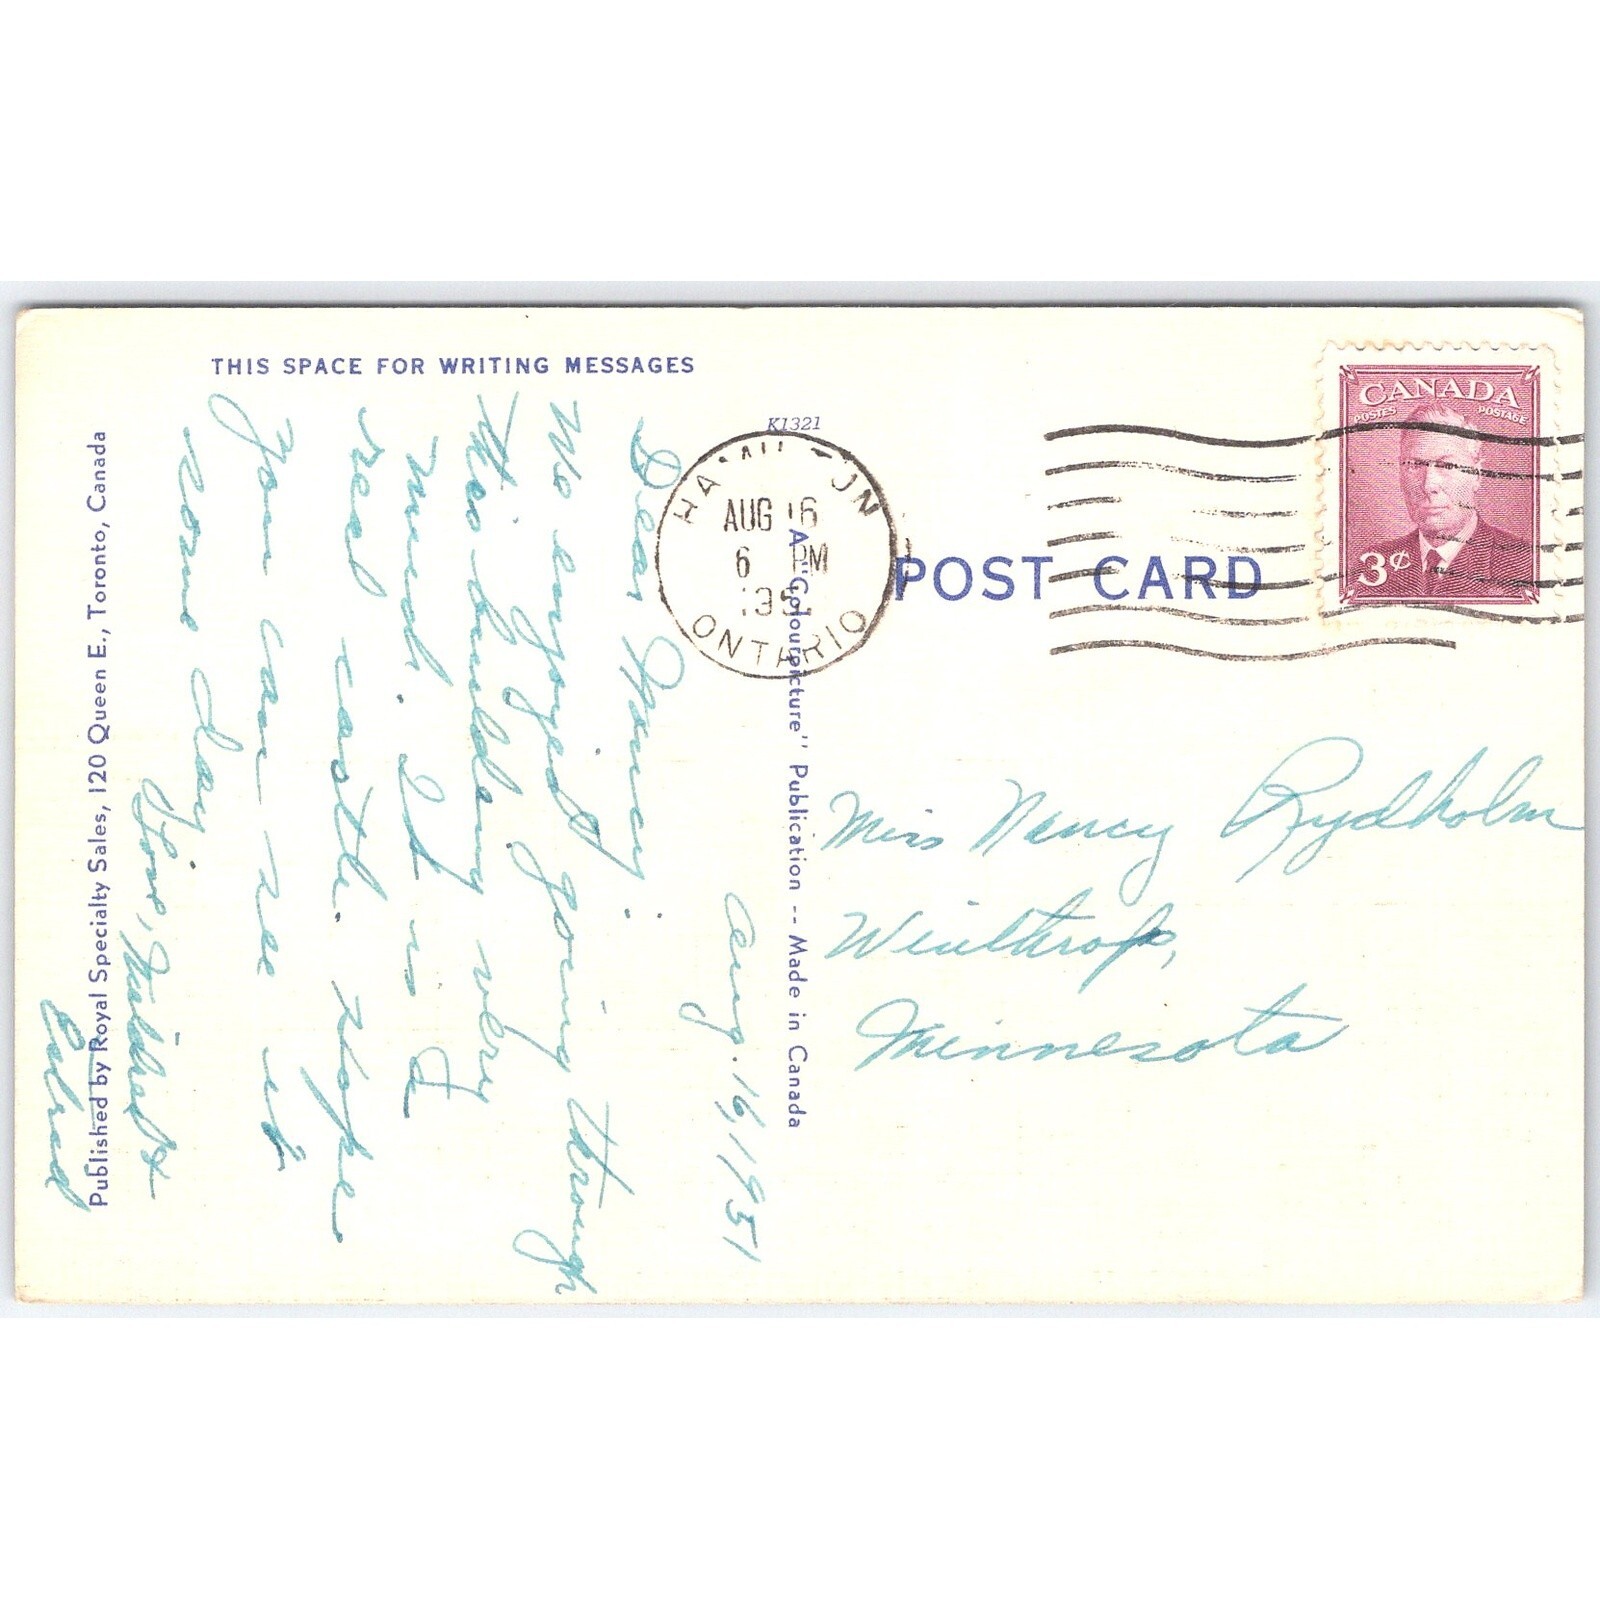 THIS SPACE FOR WRITING MESSAGES
Aug. 16, 1951
Dear Nancy:
We enjoyed going through
this building very
much. It is a
real castle. Hope
you can see it
some day.
Love,
Published by Royal Specialty Sales, 120 Queen E., Toronto, Canada
K1321
HAMILTON
AUG 16
6 PM
1951
ONTARIO
A "Colourpicture" Publication -- Made in Canada
POST CARD
CANADA
POSTES POSTAGE
3¢
Miss Nancy Rydholm
Winthrop,
Minnesota